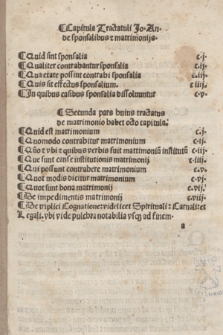 ¶Capitula Tractatuli Jo. An.
de sponsalibus ⁊ matrimonijs.
¶Quid sint sponsalia c.j.
¶Qualiter contrahantur sponsalia c.ij.
¶Qua etate possint contrahi sponsalia c.iij.
¶Quis sit effectus sponsalium. c.iiij.
¶In quibus casibus sponsalia dissoluuntur c.v.
¶Secunda pars huius tractatus
de matrimonio habet octo capitula.
¶Quid est matrimonium c.j.
¶Quomodo contrahitur matrimonium c.ij.
¶Quo ⁊ vbi ⁊ quibus verbis fuit matrimoniū institutū c.iij.
¶Que sunt cause institutionis matrimonij c.iiij.
¶Qui possunt contrahere matrimonium c.v.
¶Quot modis dicitur matrimonium c.vj.
¶Quot sunt bona matrimonij c.vij.
¶De impedimentis matrimonij c.viij.
¶De triplici Cognatione videlicet Spirituali: Carnali: et
Legali. vbi vide pulchra notabilia vsq ad finem.
a